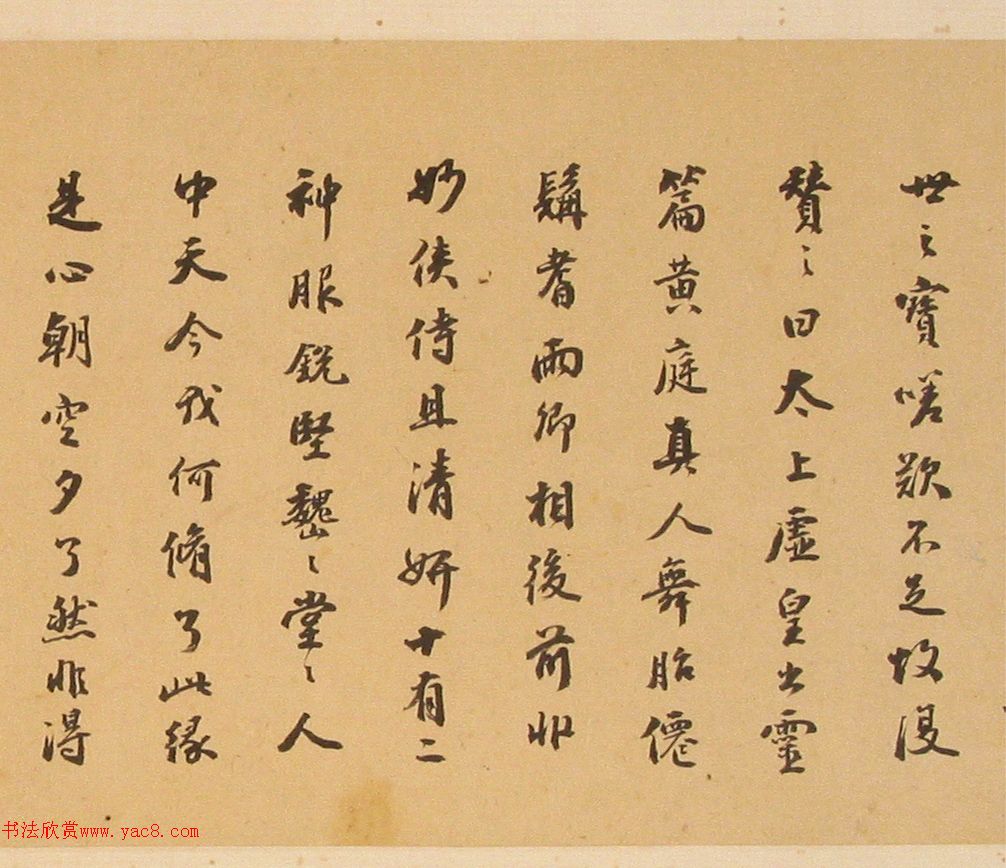 世之寶嗟歎不足故復
贊之曰太上虛皇出靈
篇黃庭真人舞胎僊
髯耆兩卿相後前丱
妙俠侍且清妍十有二
神服銳堅巍〻堂〻人
中天今我何脩了此緣
是心朝空夕了然非得
书法欣赏www.yac8.com